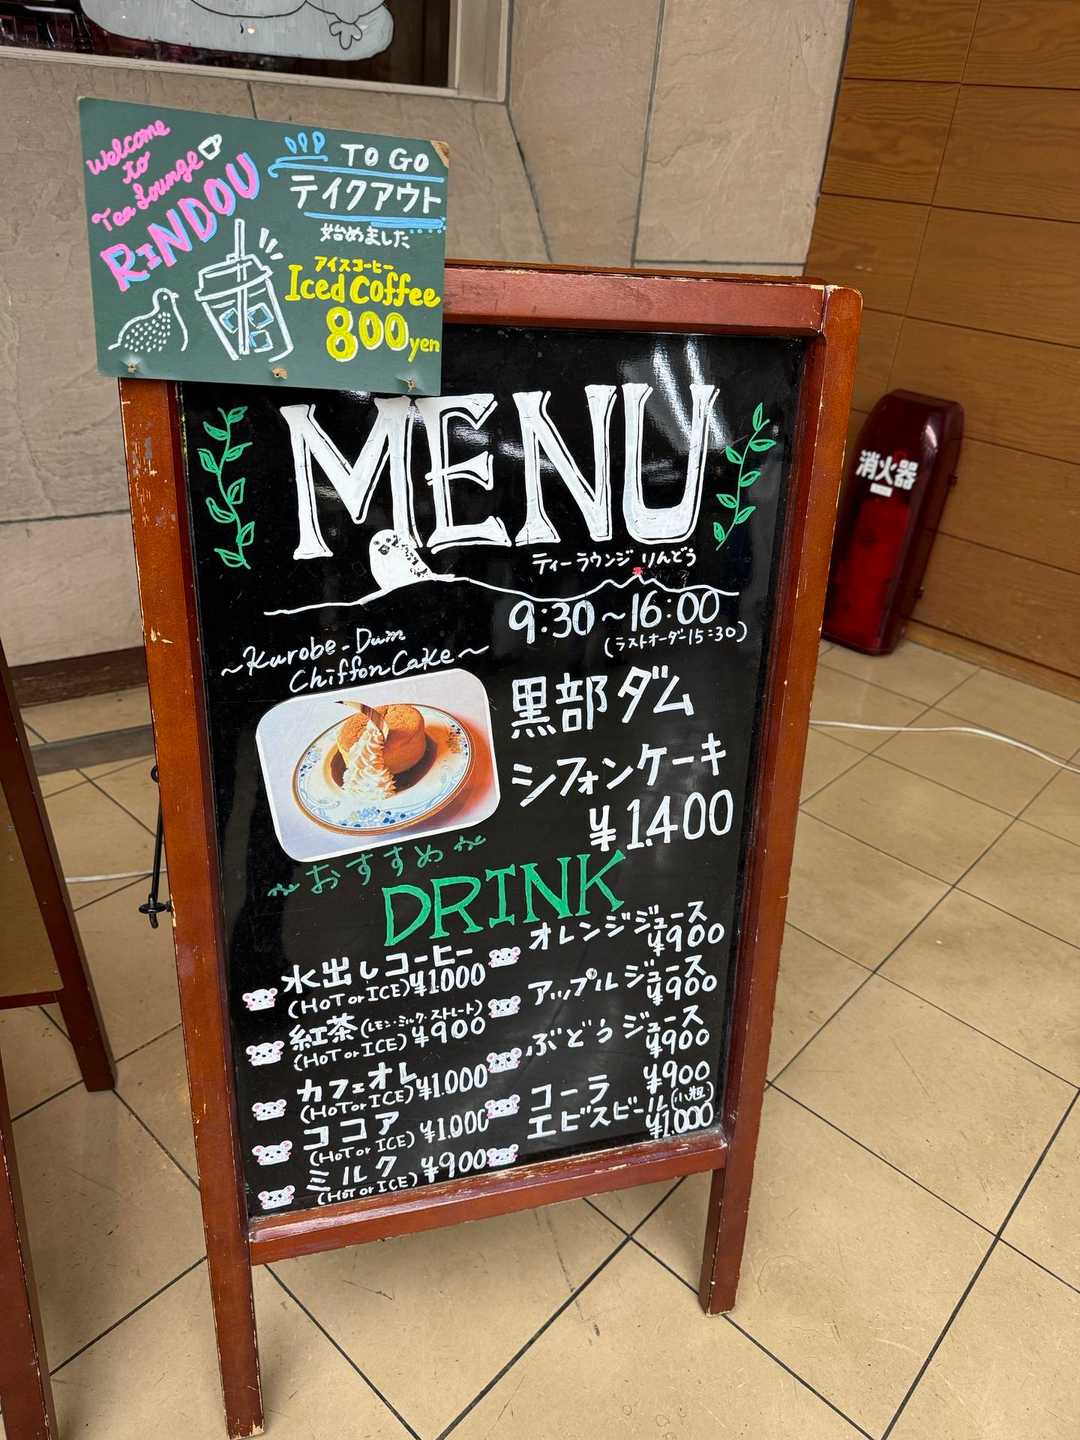 Welcome
to
Tea Lounge
RINDOU
TO GO
テイクアウト
始めました
アイスコーヒー
Iced Coffee
800yen
MENU
ティーラウンジ りんどう
9:30~16:00
(ラストオーダー15:30)
~Kurobe-Dam
Chiffon Cake~
黒部ダム
シフォンケーキ
¥1.400
~おすすめ~
DRINK
水出しコーヒー
(HOT or ICE) ¥1.000
紅茶(レモン・ミルク・ストレート)
(HOT or ICE) ¥900
カフェオレ
(HOT or ICE) ¥1.000
ココア
(HOT or ICE) ¥1.000
ミルク
(HOT or ICE) ¥900
オレンジジュース
¥900
アップルジュース
¥900
ぶどうジュース
¥900
コーラ ¥900
エビスビール(小瓶)
¥1.000
消火器